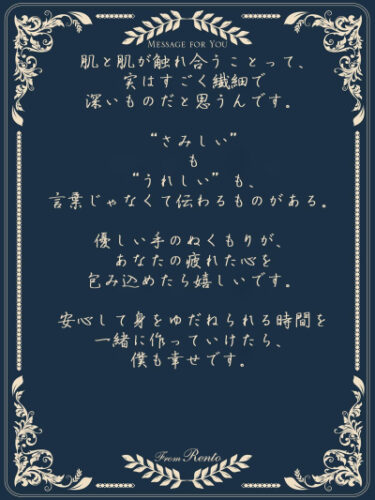 MESSAGE FOR YOU
肌と肌が触れ合うことって、
実はすごく繊細で
深いものだと思うんです。
“さみしい”
も
“うれしい” も、
言葉じゃなくて伝わるものがある。
優しい手のぬくもりが、
あなたの疲れた心を
包み込めたら嬉しいです。
安心して身をゆだねられる時間を
一緒に作っていけたら、
僕も幸せです。
From Rento